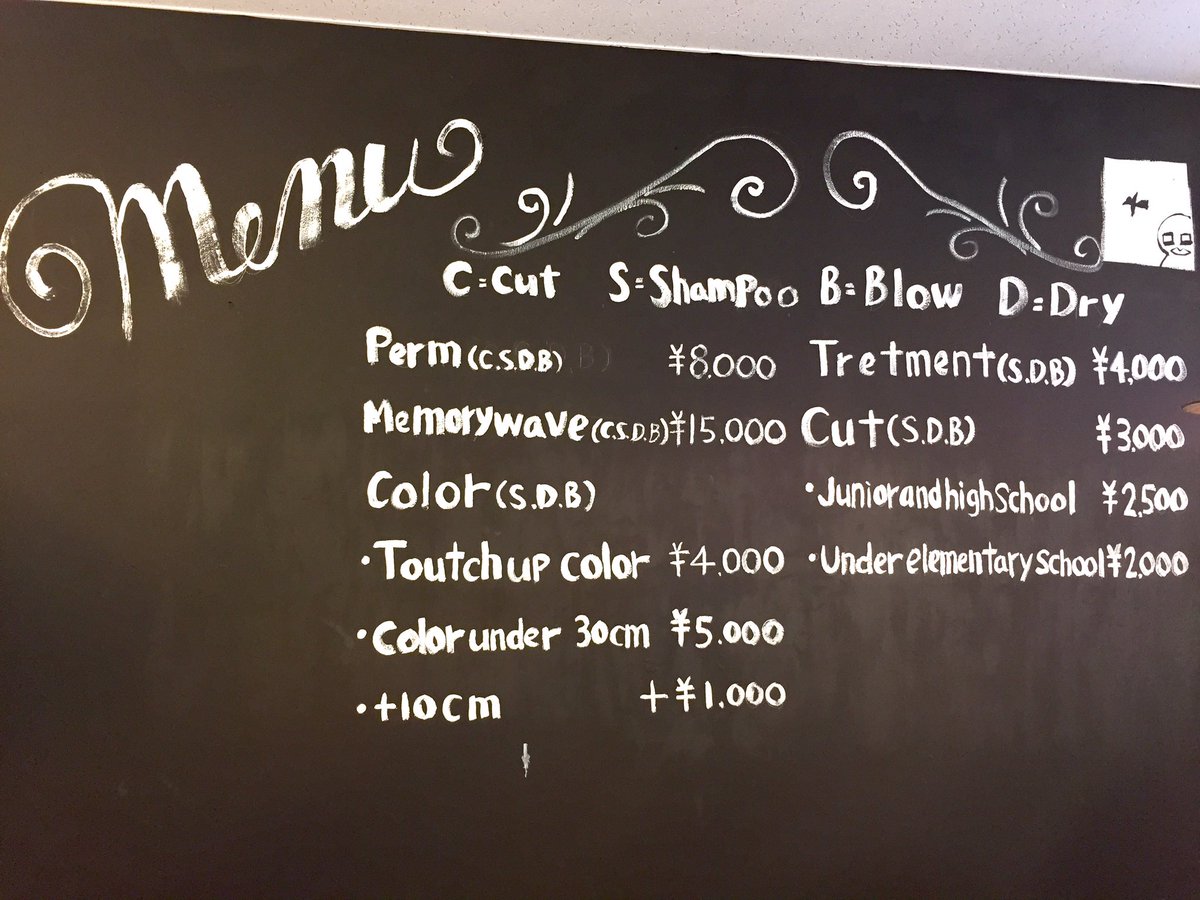 Menu
C=Cut S=Shampoo B=Blow D=Dry
Perm (C.S.D.B) ¥8.000
Memorywave (C.S.D.B) ¥15.000
Color (S.D.B)
・Toutch up color ¥4.000
・Color under 30cm ¥5.000
・+10cm +¥1.000
Tretment (S.D.B) ¥4,000
Cut (S.D.B) ¥3,000
・Junior and high School ¥2,500
・Under elementary school ¥2,000